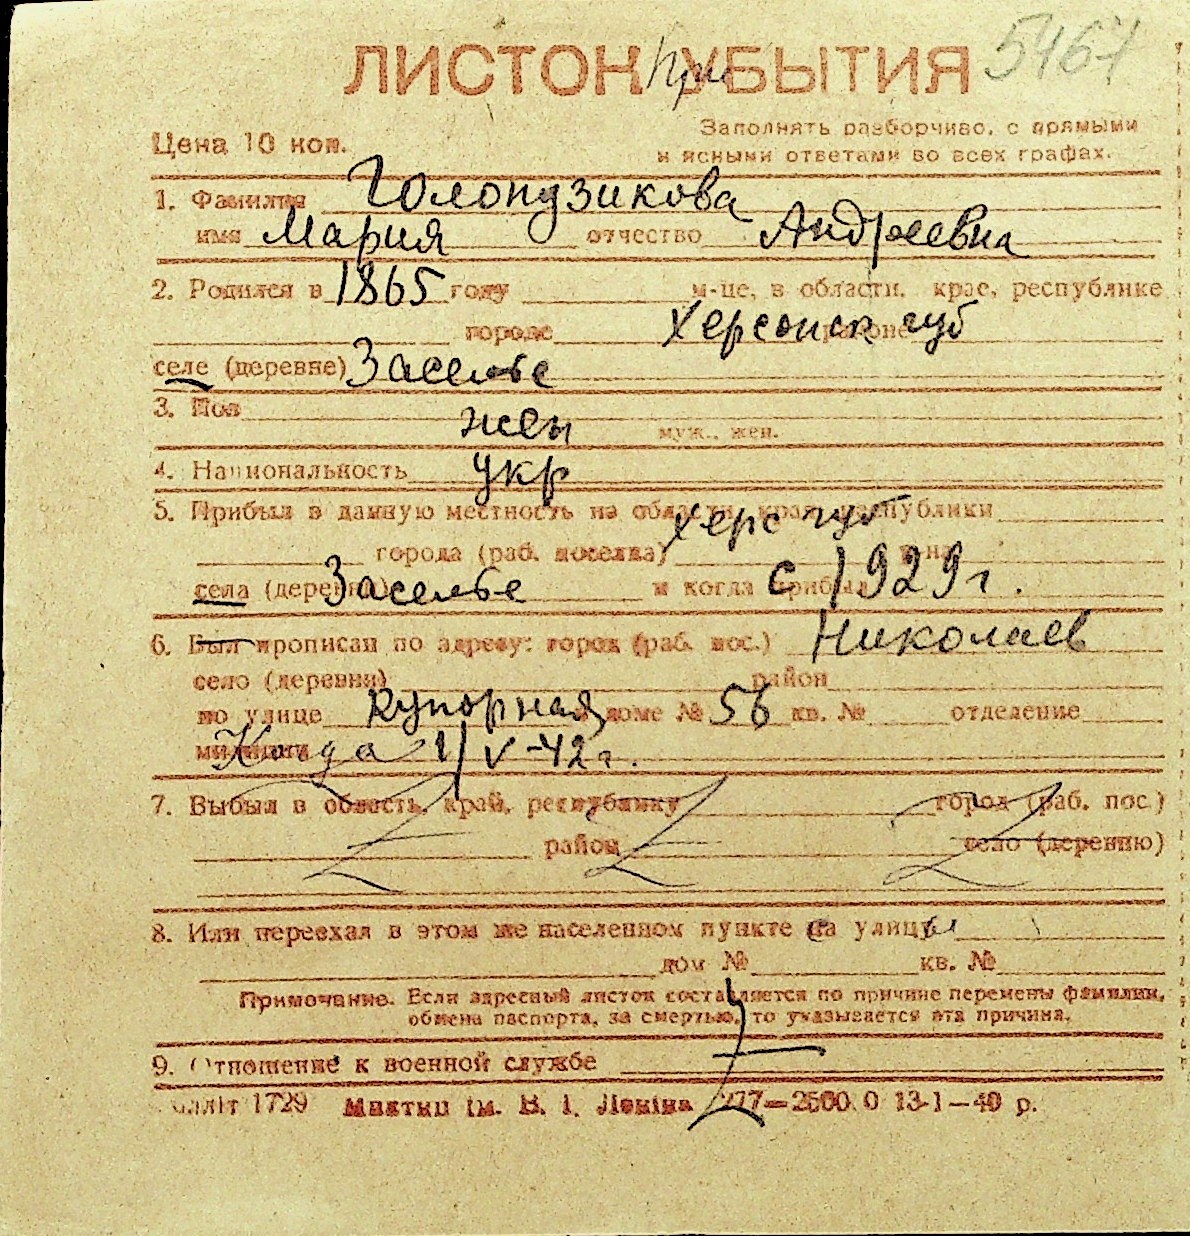 ЛИСТОК при УБЫТИЯ 5467
Цена 10 коп.
Заполнять разборчиво, с прямыми
и ясными ответами во всех графах.
1. Фамилия Голопузикова
имя Мария отчество Андреевна
2. Родился в 1865 году м-це, в области, крае, республике
городе районе Херсонск губ
селе (деревне) Заселье
3. Пол
жен муж., жен.
4. Национальность укр
5. Прибыл в данную местность из области, края, республики
города (раб. поселка) Херс губ
села (деревни) Заселье и когда прибыл с 1929 г.
6. Был прописан по адресу: город (раб. пос.) Николаев
село (деревня) район
по улице Купорная доме № 56 кв. № отделение
милиции Когда 1/V-42 г.
7. Выбыл в область, край, республику город (раб. пос.)
район село (деревню)
8. Или переехал в этом же населенном пункте с улицы
дом № кв. №
Примечание. Если адресный листок составляется по причине перемены фамилии,
обмена паспорта, за смертью, то указывается эта причина.
9. Отношение к военной службе
1729 Миятип ім. В. І. Леніна 277—2500.0 13-1—40 р.